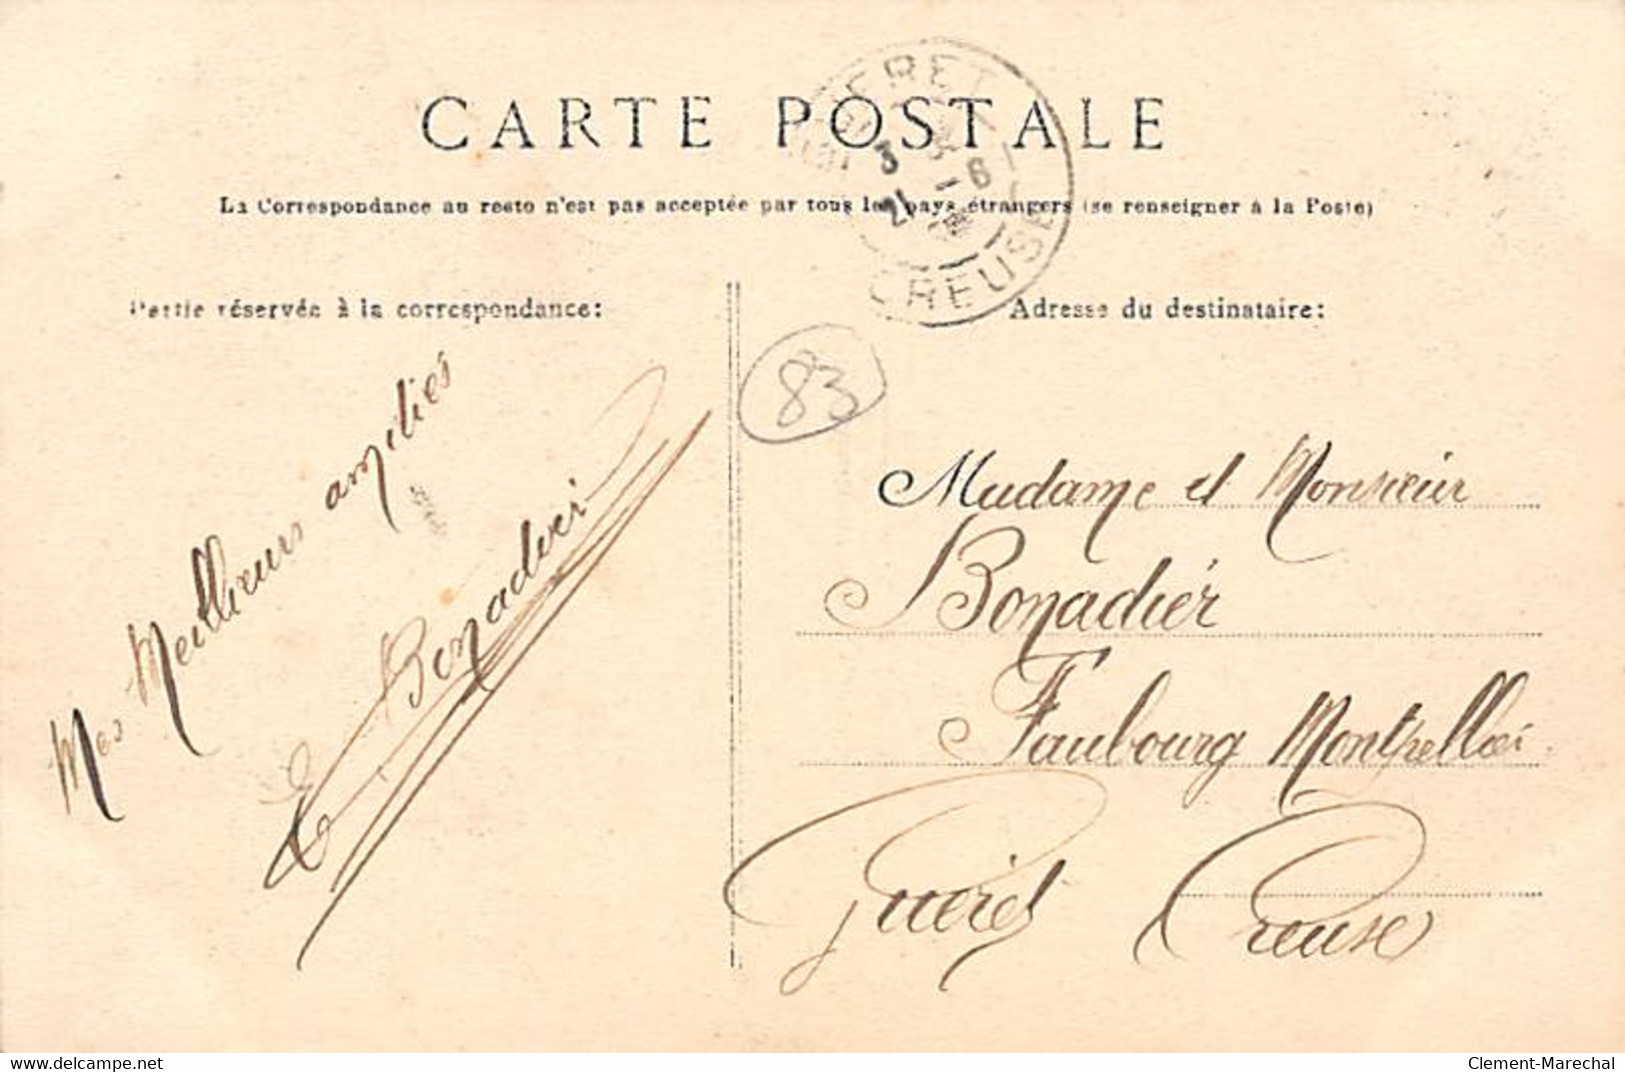 CARTE POSTALE
La Correspondance au recto n'est pas acceptée par tous les pays étrangers (se renseigner à la Poste)
GUERET
3
21 - 6
CREUSE
Partie réservée à la correspondance:
Adresse du destinataire:
83
Mes Meilleurs amitiés
E. Bonadier
Madame et Monsieur
Bonadier
Faubourg Montpellier
Guéret Creuse
delcampe.net
Clement-Marechal